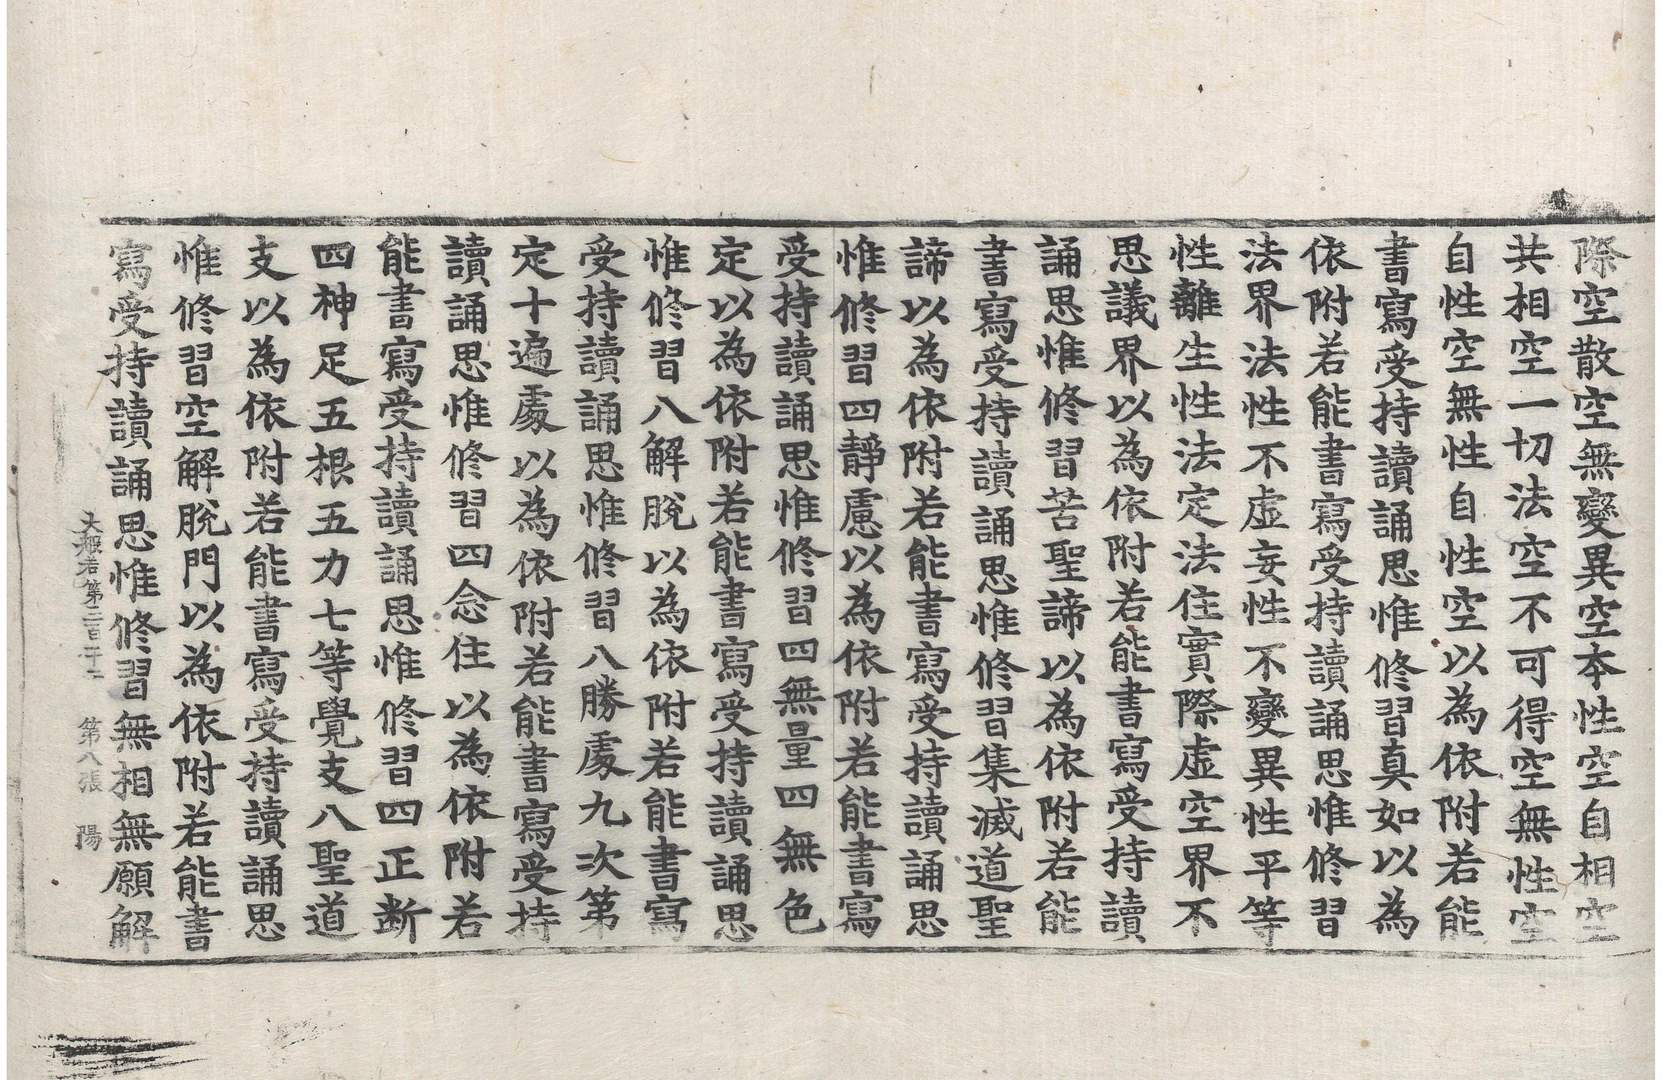 際空散空無變異空本性空自相空
共相空一切法空不可得空無性空
自性空無性自性空以為依附若能
書寫受持讀誦思惟修習真如以為
依附若能書寫受持讀誦思惟修習
法界法性不虛妄性不變異性平等
性離生性法定法住實際虛空界不
思議界以為依附若能書寫受持讀
誦思惟修習苦聖諦以為依附若能
書寫受持讀誦思惟修習集滅道聖
諦以為依附若能書寫受持讀誦思
惟修習四靜慮以為依附若能書寫
受持讀誦思惟修習四無量四無色
定以為依附若能書寫受持讀誦思
惟修習八解脫以為依附若能書寫
受持讀誦思惟修習八勝處九次第
定十遍處以為依附若能書寫受持
讀誦思惟修習四念住以為依附若
能書寫受持讀誦思惟修習四正断
四神足五根五力七等覺支八聖道
支以為依附若能書寫受持讀誦思
惟修習空解脫門以為依附若能書
寫受持讀誦思惟修習無相無願解
大般若第三百二十二 第八張 陽